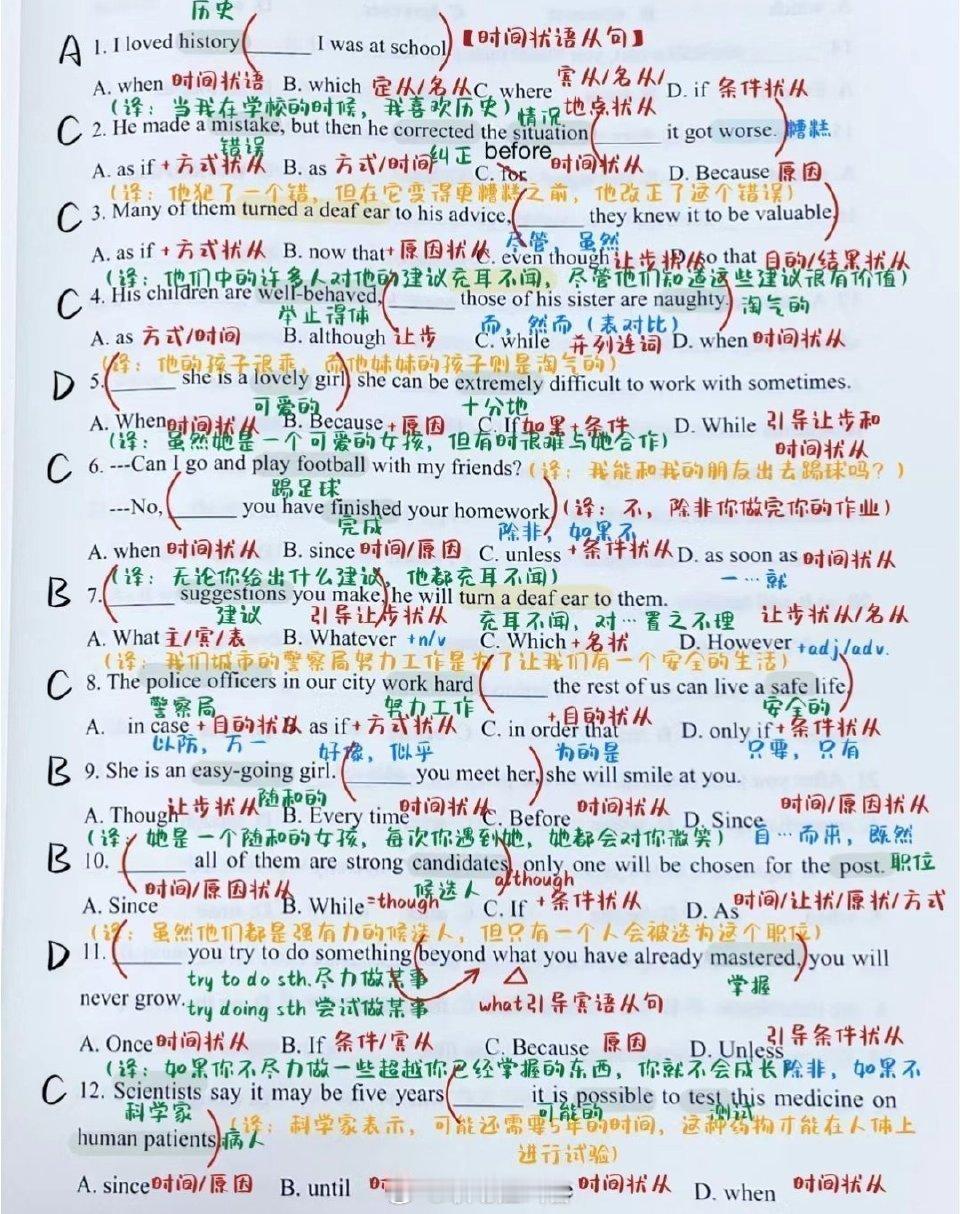 历史
A 1. I loved history ______ I was at school 【时间状语从句】
A. when 时间状语 B. which 定从/名从 C. where 宾从/名从/地点状从 D. if 条件状从
(译：当我在学校的时候，我喜欢历史) 情况
C 2. He made a mistake, but then he corrected the situation ______ it got worse. 糟糕
错误 纠正 before
A. as if +方式状从 B. as 方式/时间 C. for 时间状从 D. Because 原因
(译：他犯了一个错，但在它变得更糟糕之前，他改正了这个错误)
C 3. Many of them turned a deaf ear to his advice, ______ they knew it to be valuable.
尽管，虽然
A. as if +方式状从 B. now that +原因状从 C. even though 让步状从 D. so that 目的/结果状从
(译：他们中的许多人对他的建议充耳不闻，尽管他们知道这些建议很有价值)
C 4. His children are well-behaved, ______ those of his sister are naughty. 淘气的
举止得体 而，然而（表对比）
A. as 方式/时间 B. although 让步 C. while 并列连词 D. when 时间状从
(译：他的孩子很乖，而他妹妹的孩子则是淘气的)
D 5. ______ she is a lovely girl, she can be extremely difficult to work with sometimes.
可爱的 十分地
A. When 时间状从 B. Because +原因 C. If 如果+条件 D. While 引导让步和时间状从
(译：虽然她是一个可爱的女孩，但有时很难与她合作)
C 6. ---Can I go and play football with my friends? (译：我能和我的朋友出去踢球吗？)
踢足球
---No, ______ you have finished your homework. (译：不，除非你做完你的作业)
完成 除非，如果不
A. when 时间状从 B. since 时间/原因 C. unless +条件状从 D. as soon as 时间状从
(译：无论你给出什么建议，他都充耳不闻) 一…就
B 7. ______ suggestions you make, he will turn a deaf ear to them.
建议 引导让步状从 充耳不闻，对…置之不理 让步状从/名从
A. What 主/宾/表 B. Whatever +n/v C. Which +名状 D. However +adj/adv.
(译：我们城市的警察局努力工作是为了让我们有一个安全的生活)
C 8. The police officers in our city work hard ______ the rest of us can live a safe life.
警察局 努力工作 安全的
A. in case +目的状从 B. as if +方式状从 C. in order that +目的状从 D. only if +条件状从
以防，万一 好像，似乎 为的是 只要，只有
B 9. She is an easy-going girl. ______ you meet her, she will smile at you.
随和的
A. Though 让步状从 B. Every time 时间状从 C. Before 时间状从 D. Since 时间/原因状从
(译：她是一个随和的女孩，每次你遇到她，她都会对你微笑) 自…而来，既然
B 10. ______ all of them are strong candidates, only one will be chosen for the post. 职位
候选人 although
A. Since 时间/原因状从 B. While =though C. If +条件状从 D. As 时间/让状/原状/方式
(译：虽然他们都是强有力的候选人，但只有一个人会被选为这个职位)
D 11. ______ you try to do something beyond what you have already mastered, you will
try to do sth. 尽力做某事 掌握
never grow. try doing sth 尝试做某事 what引导宾语从句
A. Once 时间状从 B. If 条件/宾从 C. Because 原因 D. Unless 引导条件状从
(译：如果你不尽力做一些超越你已经掌握的东西，你就不会成长) 除非，如果不
C 12. Scientists say it may be five years ______ it is possible to test this medicine on
科学家 可能的 测试
human patients. 病人 (译：科学家表示，可能还需要5年的时间，这种药物才能在人体上
进行试验)
A. since 时间/原因 B. until 时间状从 D. when 时间状从